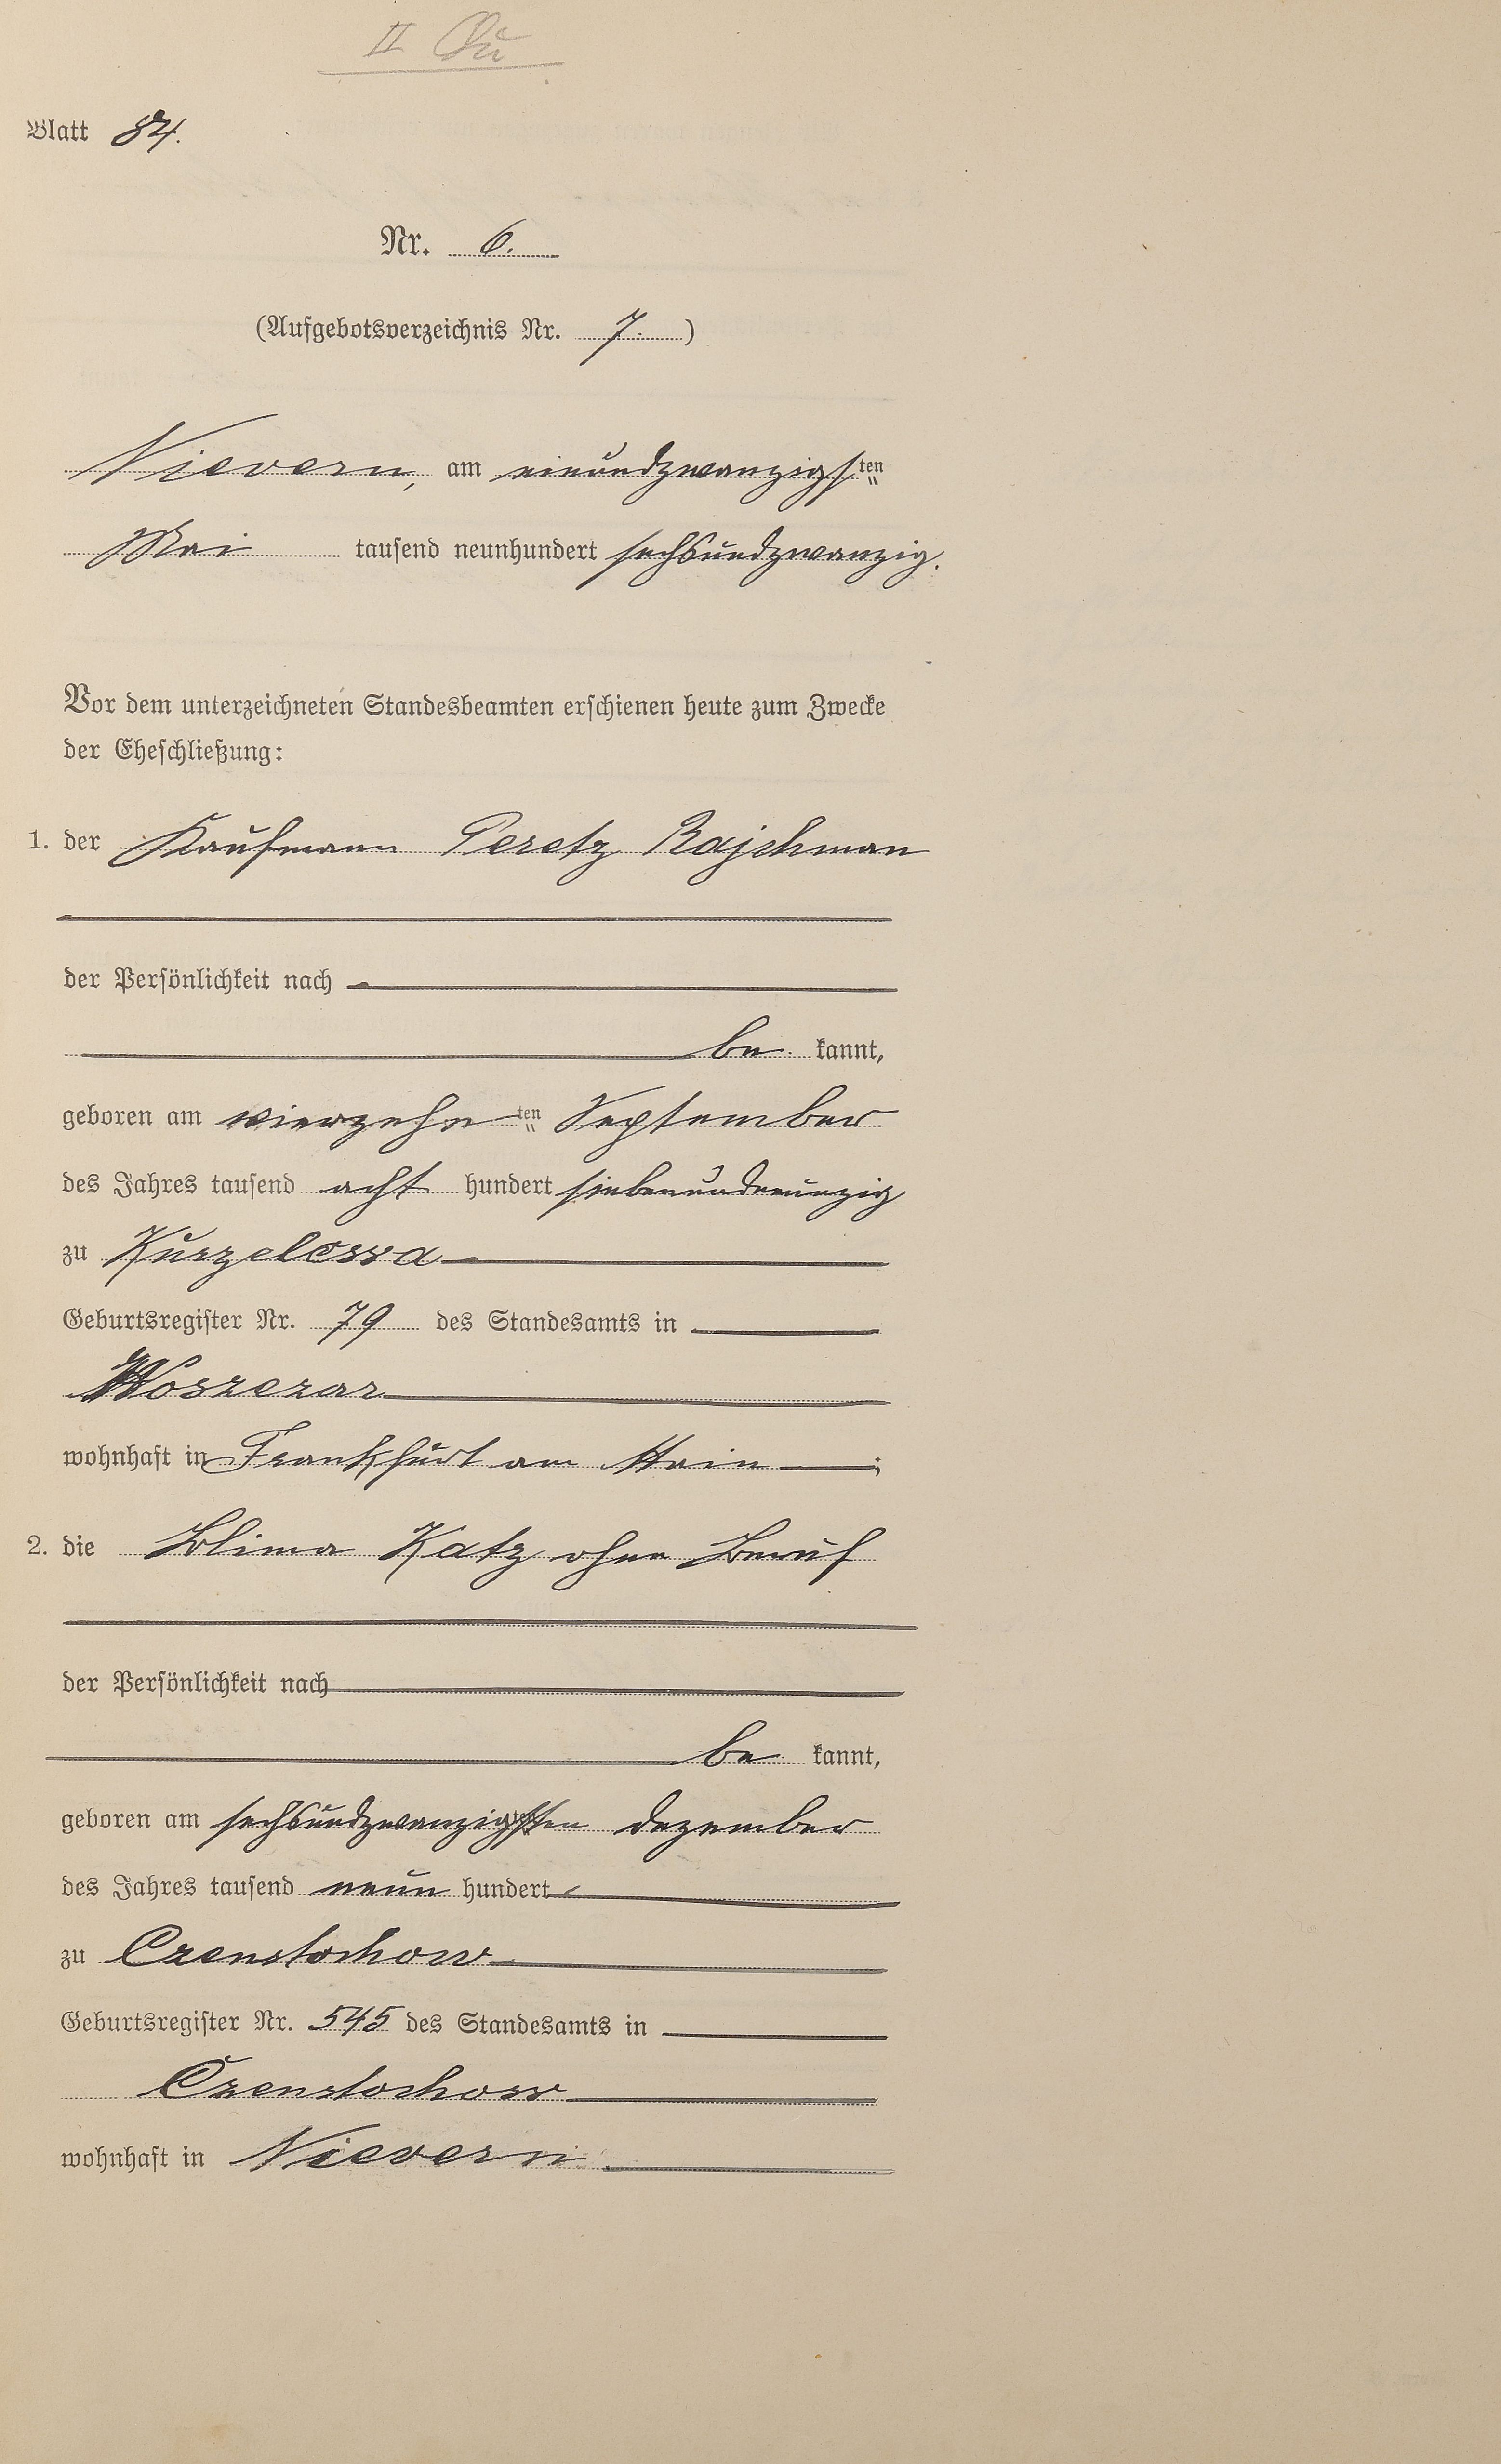 II
Blatt 84.
Nr. 6.
(Aufgebotsverzeichnis Nr. 7.)
Nievern, am einundzwanzigsten
Mai tausend neunhundert sechsundzwanzig.
Vor dem unterzeichneten Standesbeamten erschienen heute zum Zwecke
der Eheschließung:
1. der Kaufmann Peretz Rajchman
der Persönlichkeit nach
be kannt,
geboren am vierzehnten September
des Jahres tausend acht hundert siebenundneunzig
zu
Geburtsregister Nr. 79 des Standesamts in
wohnhaft in Frankfurt am Main ;
2. die Blima Katz ohne Beruf
der Persönlichkeit nach
be kannt,
geboren am sechsundzwanzigsten Dezember
des Jahres tausend neun hundert
zu Czenstochow
Geburtsregister Nr. 545 des Standesamts in
Czenstochow
wohnhaft in Nievern